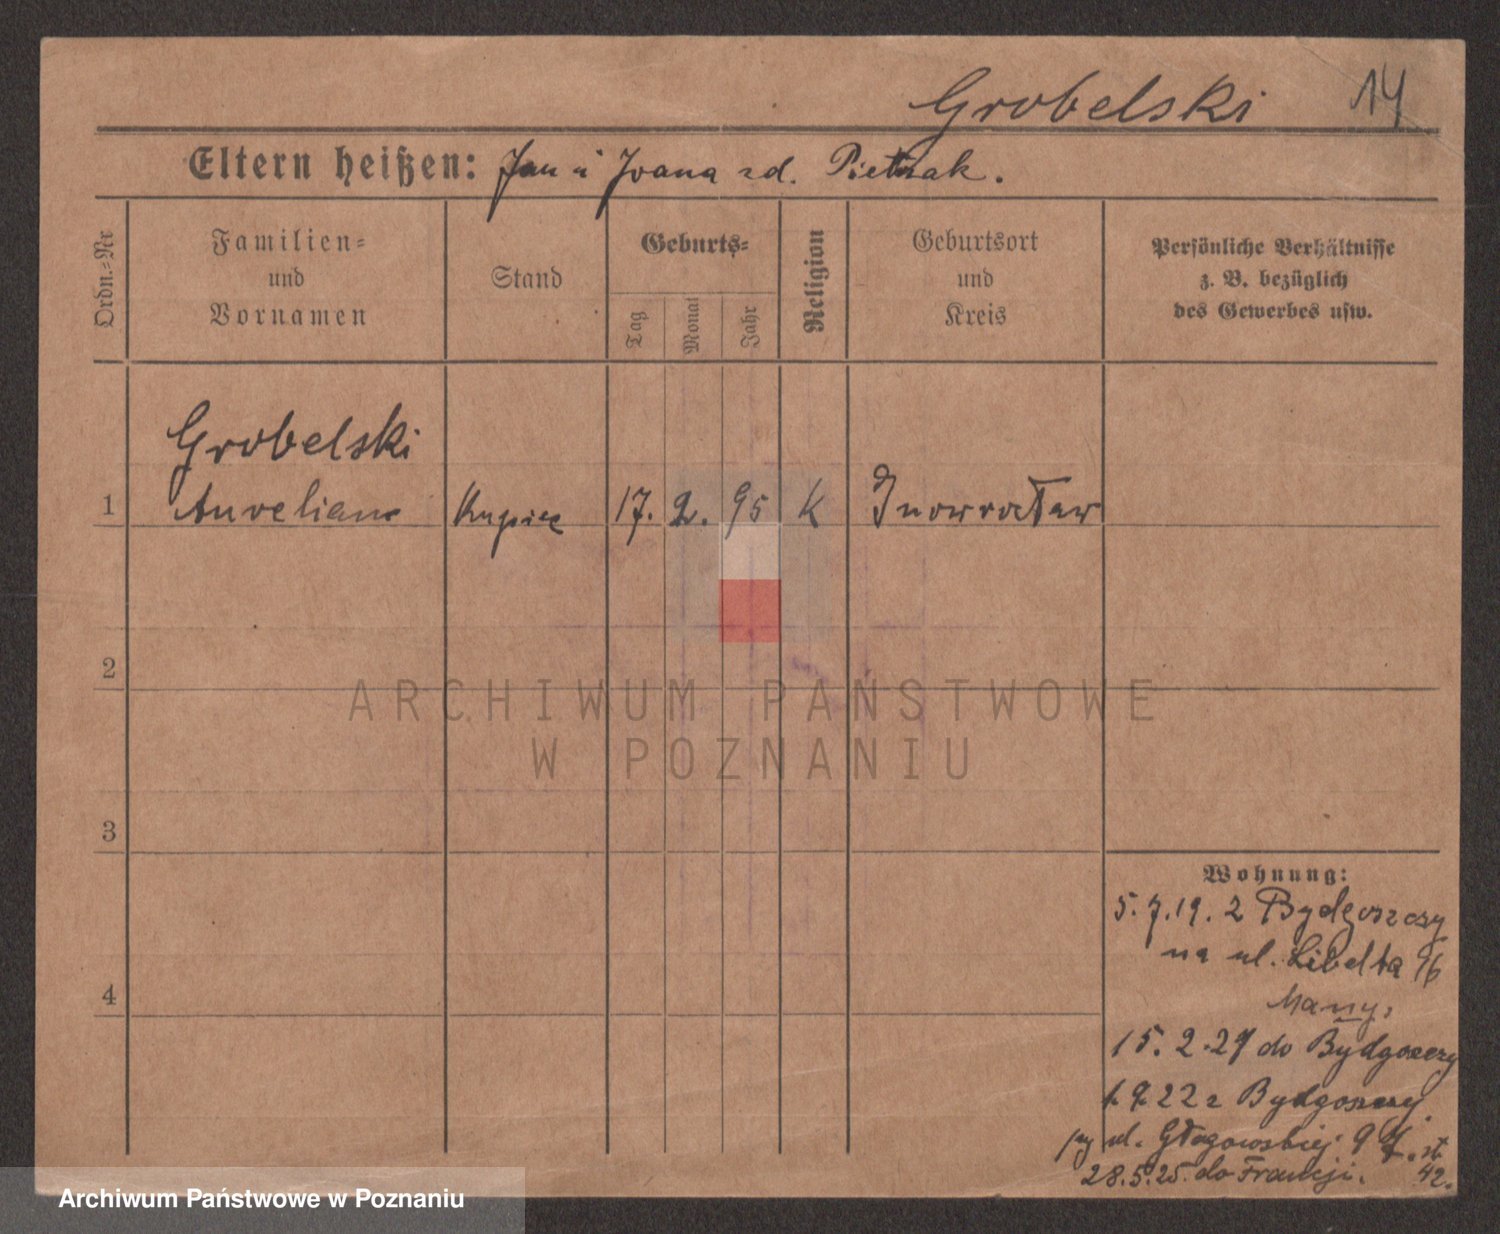 Grobelski 14
Eltern heißen: Jan i Joana zd. Pietrzak.
Ordn.-Nr
Familien-
und
Vornamen
Stand
Geburts-
Tag
Monat
Jahr
Religion
Geburtsort
und
Kreis
Persönliche Verhältnisse
z. B. bezüglich
des Gewerbes usw.
Grobelski
1 Aureliann Kupiec 17. 2. 95 K Inowrocław
2
ARCHIWUM PAŃSTWOWE
W POZNANIU
3
Wohnung:
5.7.19. z Bydgoszczy
na ul. Libelta 96
4
15.2.21 do Bydgoszczy
1.9.22 z Bydgoszczy
ul. Głogowskiej 97. st
28.5.25. do Francji. 42.
Archiwum Państwowe w Poznaniu